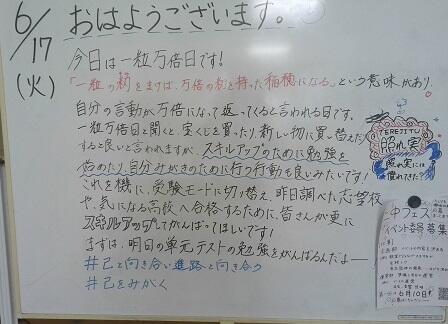 6/17
(火)
おはようございます。
今日は一粒万倍日です!
「一粒の籾をまけば、万倍の籾を持った稲穂になる」という意味があり、
自分の言動が万倍になって返ってくると言われる日です。
一粒万倍日と聞くと、宝くじを買ったり、新しい物に買い替えたり
すると良いと言われますが、スキルアップのために勉強を
始めたり、自分みがきのために行う行動も良いみたいです!
これを機に、受験モードに切り替え、昨日調べた志望校
や、気になる高校へ合格するために、皆さんが更に
スキルアップしてがんばってほしいです!
まずは、明日の単元テストの勉強をがんばるんだよー
#己と向き合い進路と向き合う
#己をみがく
TEREJITU
照れ実
慣れてきた?
フェス
イベント委員募集
6月10日